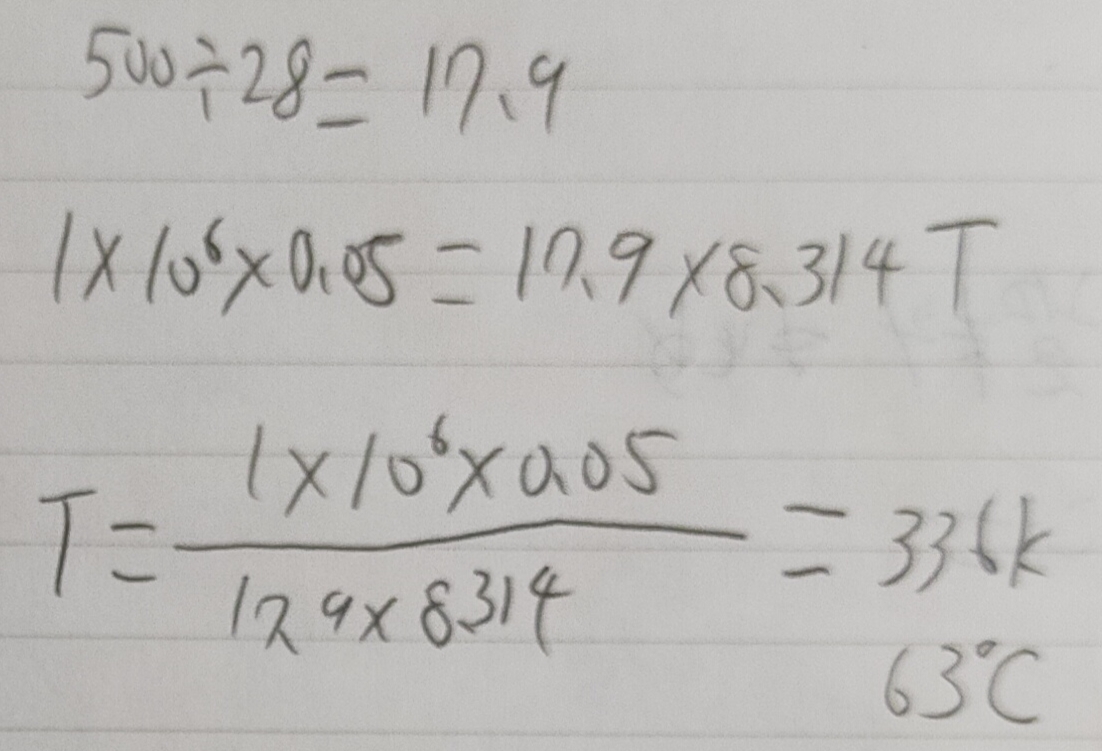 500÷28=17.9
1×10⁶×0.05=17.9×8.314T
T=(1×10⁶×0.05)/(17.9×8.314)=336k
63°C